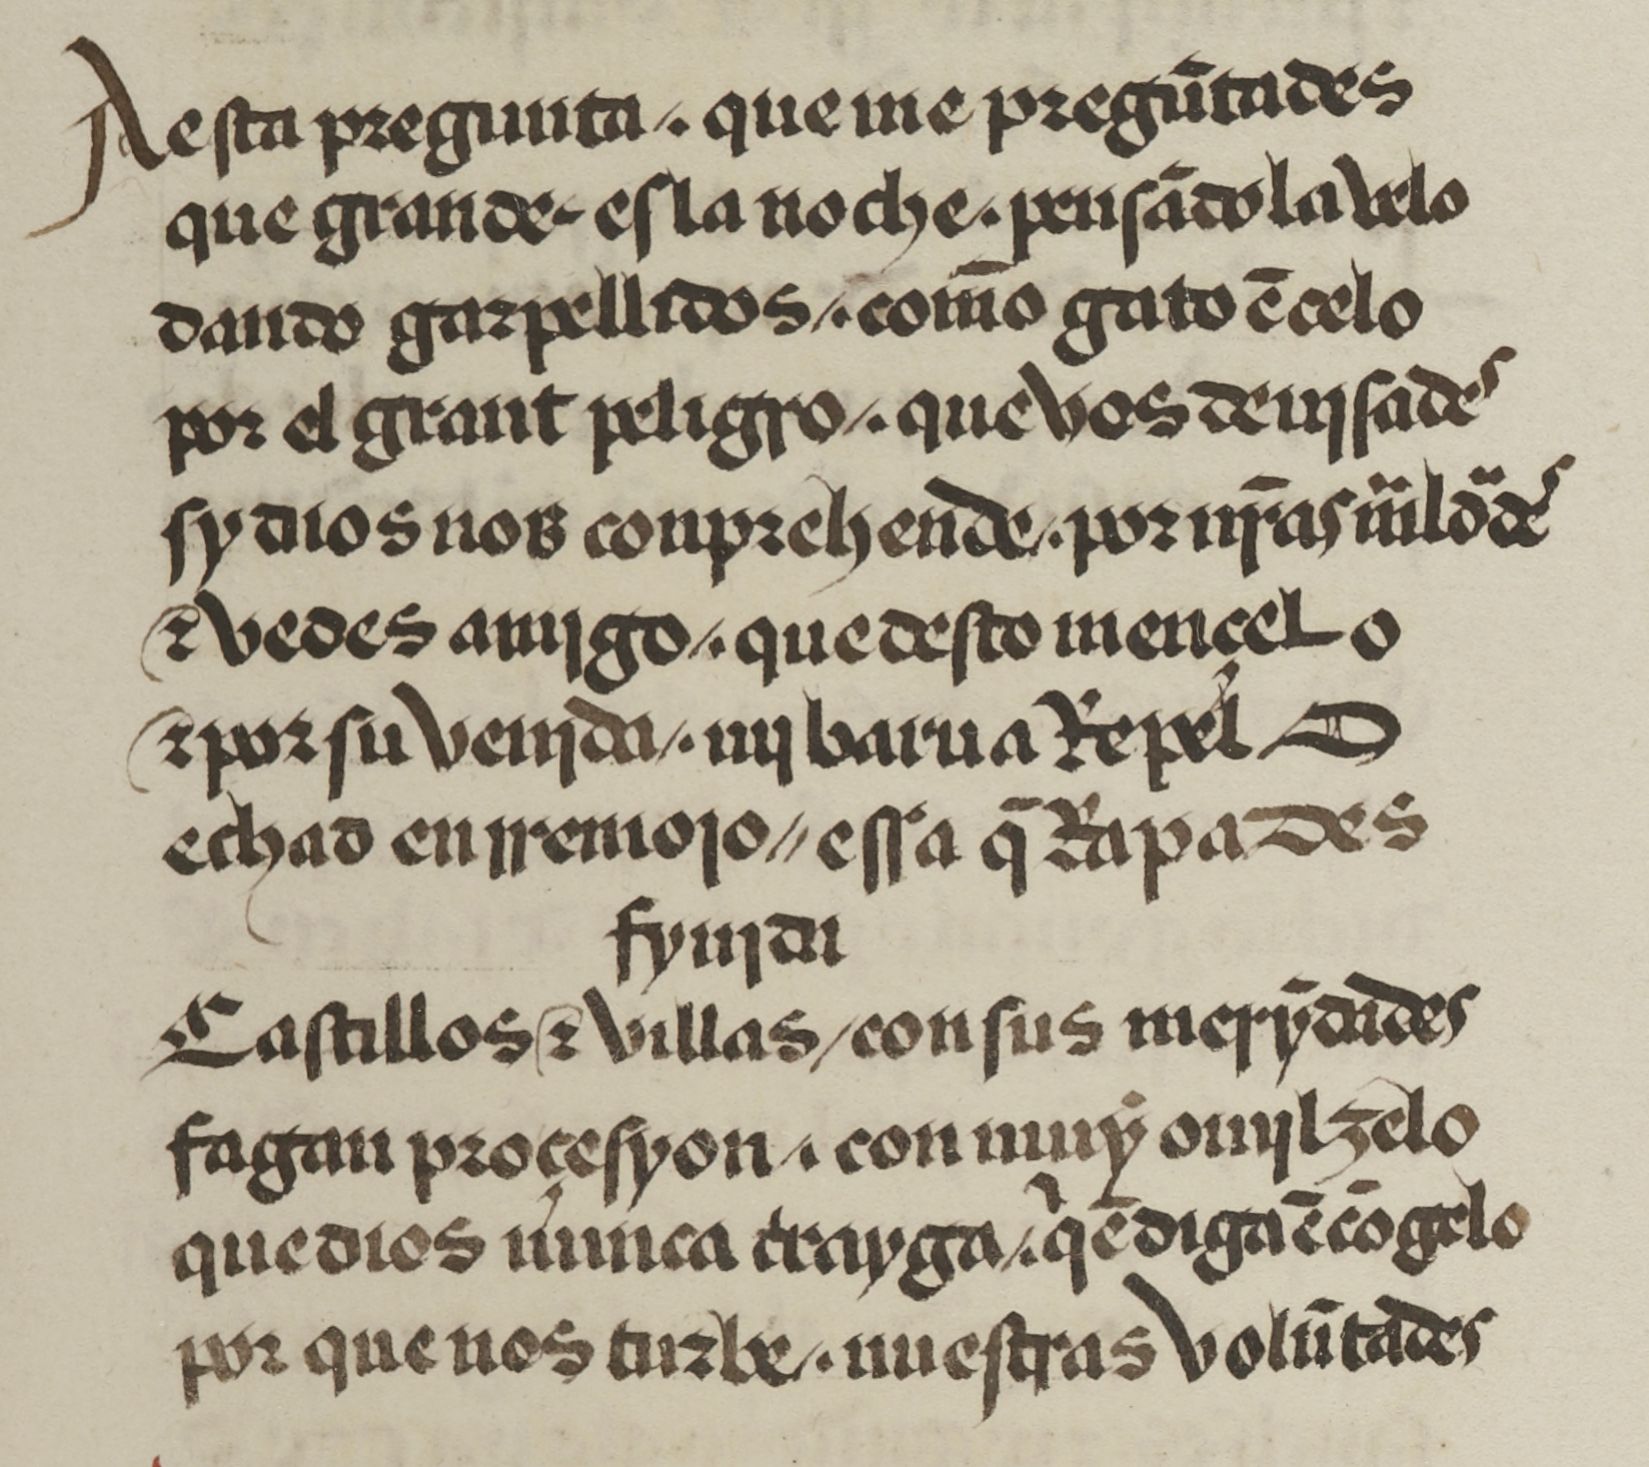 A esta pregunta /. que me pregũtades
que grande - es la noche . pensãdo la velo
dando garpellidos /. com̃o gato ẽ celo
por el grant peligro /. que vos deuisades
sy dios nos conprehende /. por nr̃as m̃ldades
⁊ vedes amigo /. que desto mencelo
⁊ por su venida /. mi barua Repelo
echad en rremojo // essa q̃ Rapades
fynida
Castillos ⁊ villas / con sus merỹdades
fagan proçesyon /. con muy omil zelo
que dios nunca trayga /. q̃ẽ diga ẽcõgelo
por que nos turbe /. nuestras volũtades